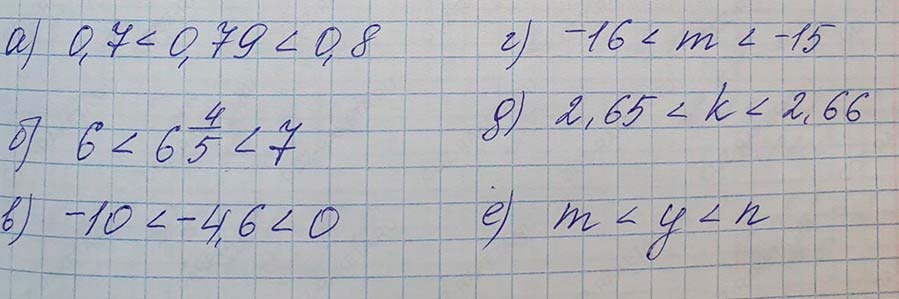 а) 0,7 < 0,79 < 0,8
б) 6 < 6 4/5 < 7
в) -10 < -4,6 < 0
г) -16 < m < -15
д) 2,65 < k < 2,66
е) m < y < n